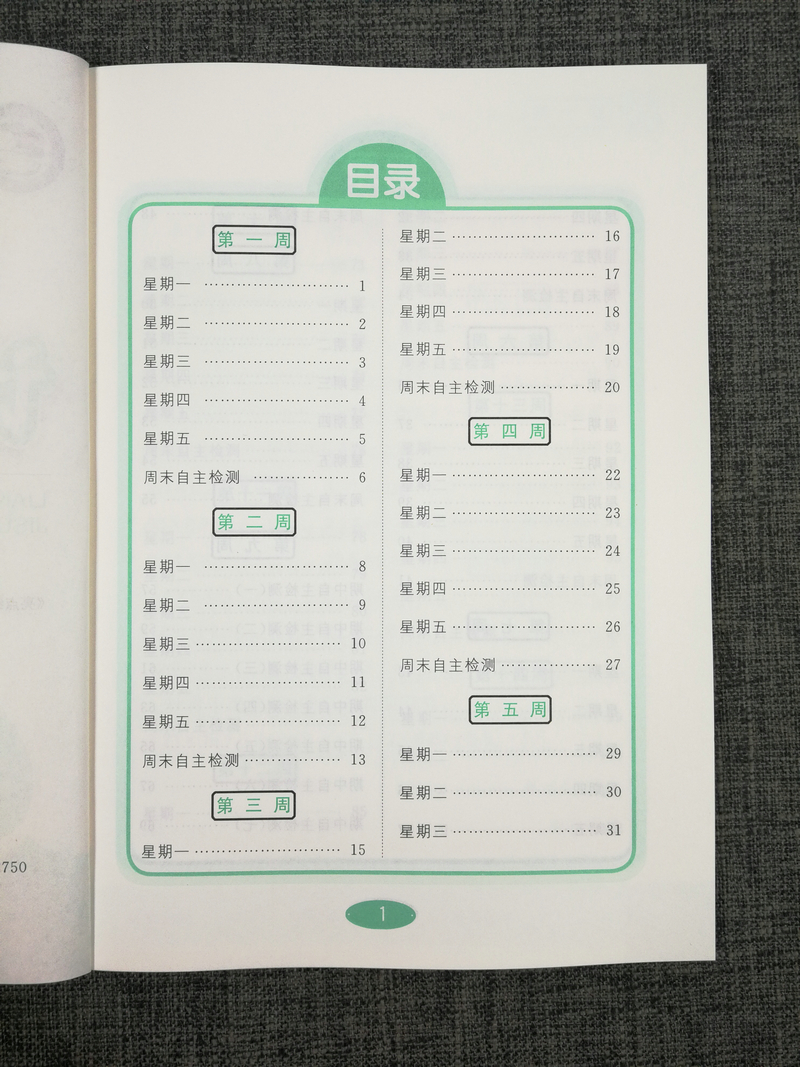 目录
第一周
星期一 ………………………… 1
星期二 ………………………… 2
星期三 ………………………… 3
星期四 ………………………… 4
星期五 ………………………… 5
周末自主检测 ……………… 6
第二周
星期一 ………………………… 8
星期二 ………………………… 9
星期三 ………………………… 10
星期四 ………………………… 11
星期五 ………………………… 12
周末自主检测 ……………… 13
第三周
星期一 ………………………… 15
星期二 ………………………… 16
星期三 ………………………… 17
星期四 ………………………… 18
星期五 ………………………… 19
周末自主检测 ……………… 20
第四周
星期一 ………………………… 22
星期二 ………………………… 23
星期三 ………………………… 24
星期四 ………………………… 25
星期五 ………………………… 26
周末自主检测 ……………… 27
第五周
星期一 ………………………… 29
星期二 ………………………… 30
星期三 ………………………… 31
1
750